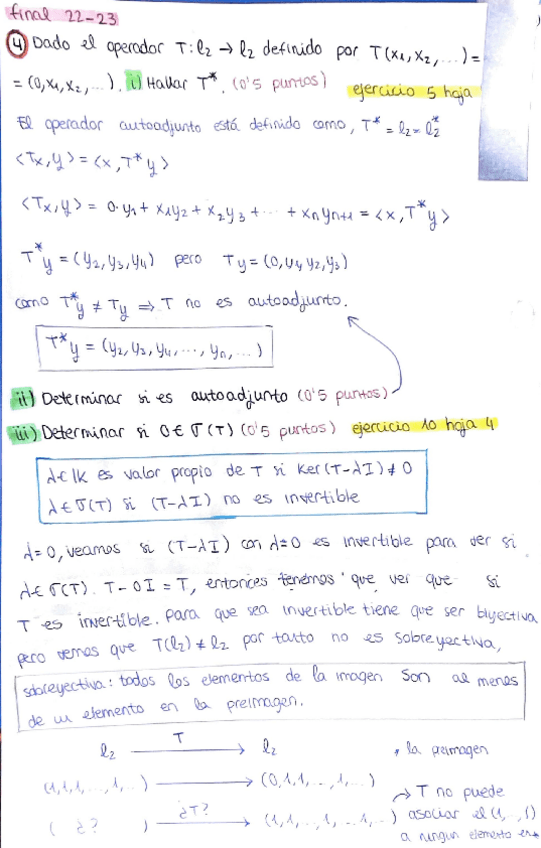 final 22-23
④ Dado el operador T: l₂ → l₂ definido por T(x₁, x₂, ...) =
= (0, x₁, x₂, ...). i) Hallar T*. (0'5 puntos) ejercicio 5 hoja
El operador autoadjunto está definido como, T* = l₂ = l₂*
<Tx, y> = <x, T*y>
<Tx, y> = 0·y₁ + x₁y₂ + x₂y₃ + ... + xₙyₙ₊₁ = <x, T*y>
T*y = (y₂, y₃, y₄) pero Ty = (0, y₂, y₃)
como T*y ≠ Ty ⇒ T no es autoadjunto.
T*y = (y₂, y₃, y₄, ..., yₙ, ...)
ii) Determinar si es autoadjunto (0'5 puntos)
iii) Determinar si 0 ∈ σ(T) (0'5 puntos) ejercicio 10 hoja 4
λ ∈ K es valor propio de T si Ker(T-λI) ≠ 0
λ ∈ σ(T) si (T-λI) no es invertible
λ=0, veamos si (T-λI) con λ=0 es invertible para ver si
λ ∈ σ(T). T-0I = T, entonces tenemos que ver que si
T es invertible. para que sea invertible tiene que ser biyectiva
pero vemos que T(l₂) ≠ l₂ por tanto no es sobreyectiva,
sobreyectiva: todos los elementos de la imagen son al menos
de un elemento en la preimagen.
l₂ T→ l₂ la preimagen
(1,1,1,...,1,...) → (0,1,1,...,1,...) → T no puede
( ¿? ) ¿T?→ (1,1,...,1,...,1,...) asociar el (1,...,1)
a ningun elemento en